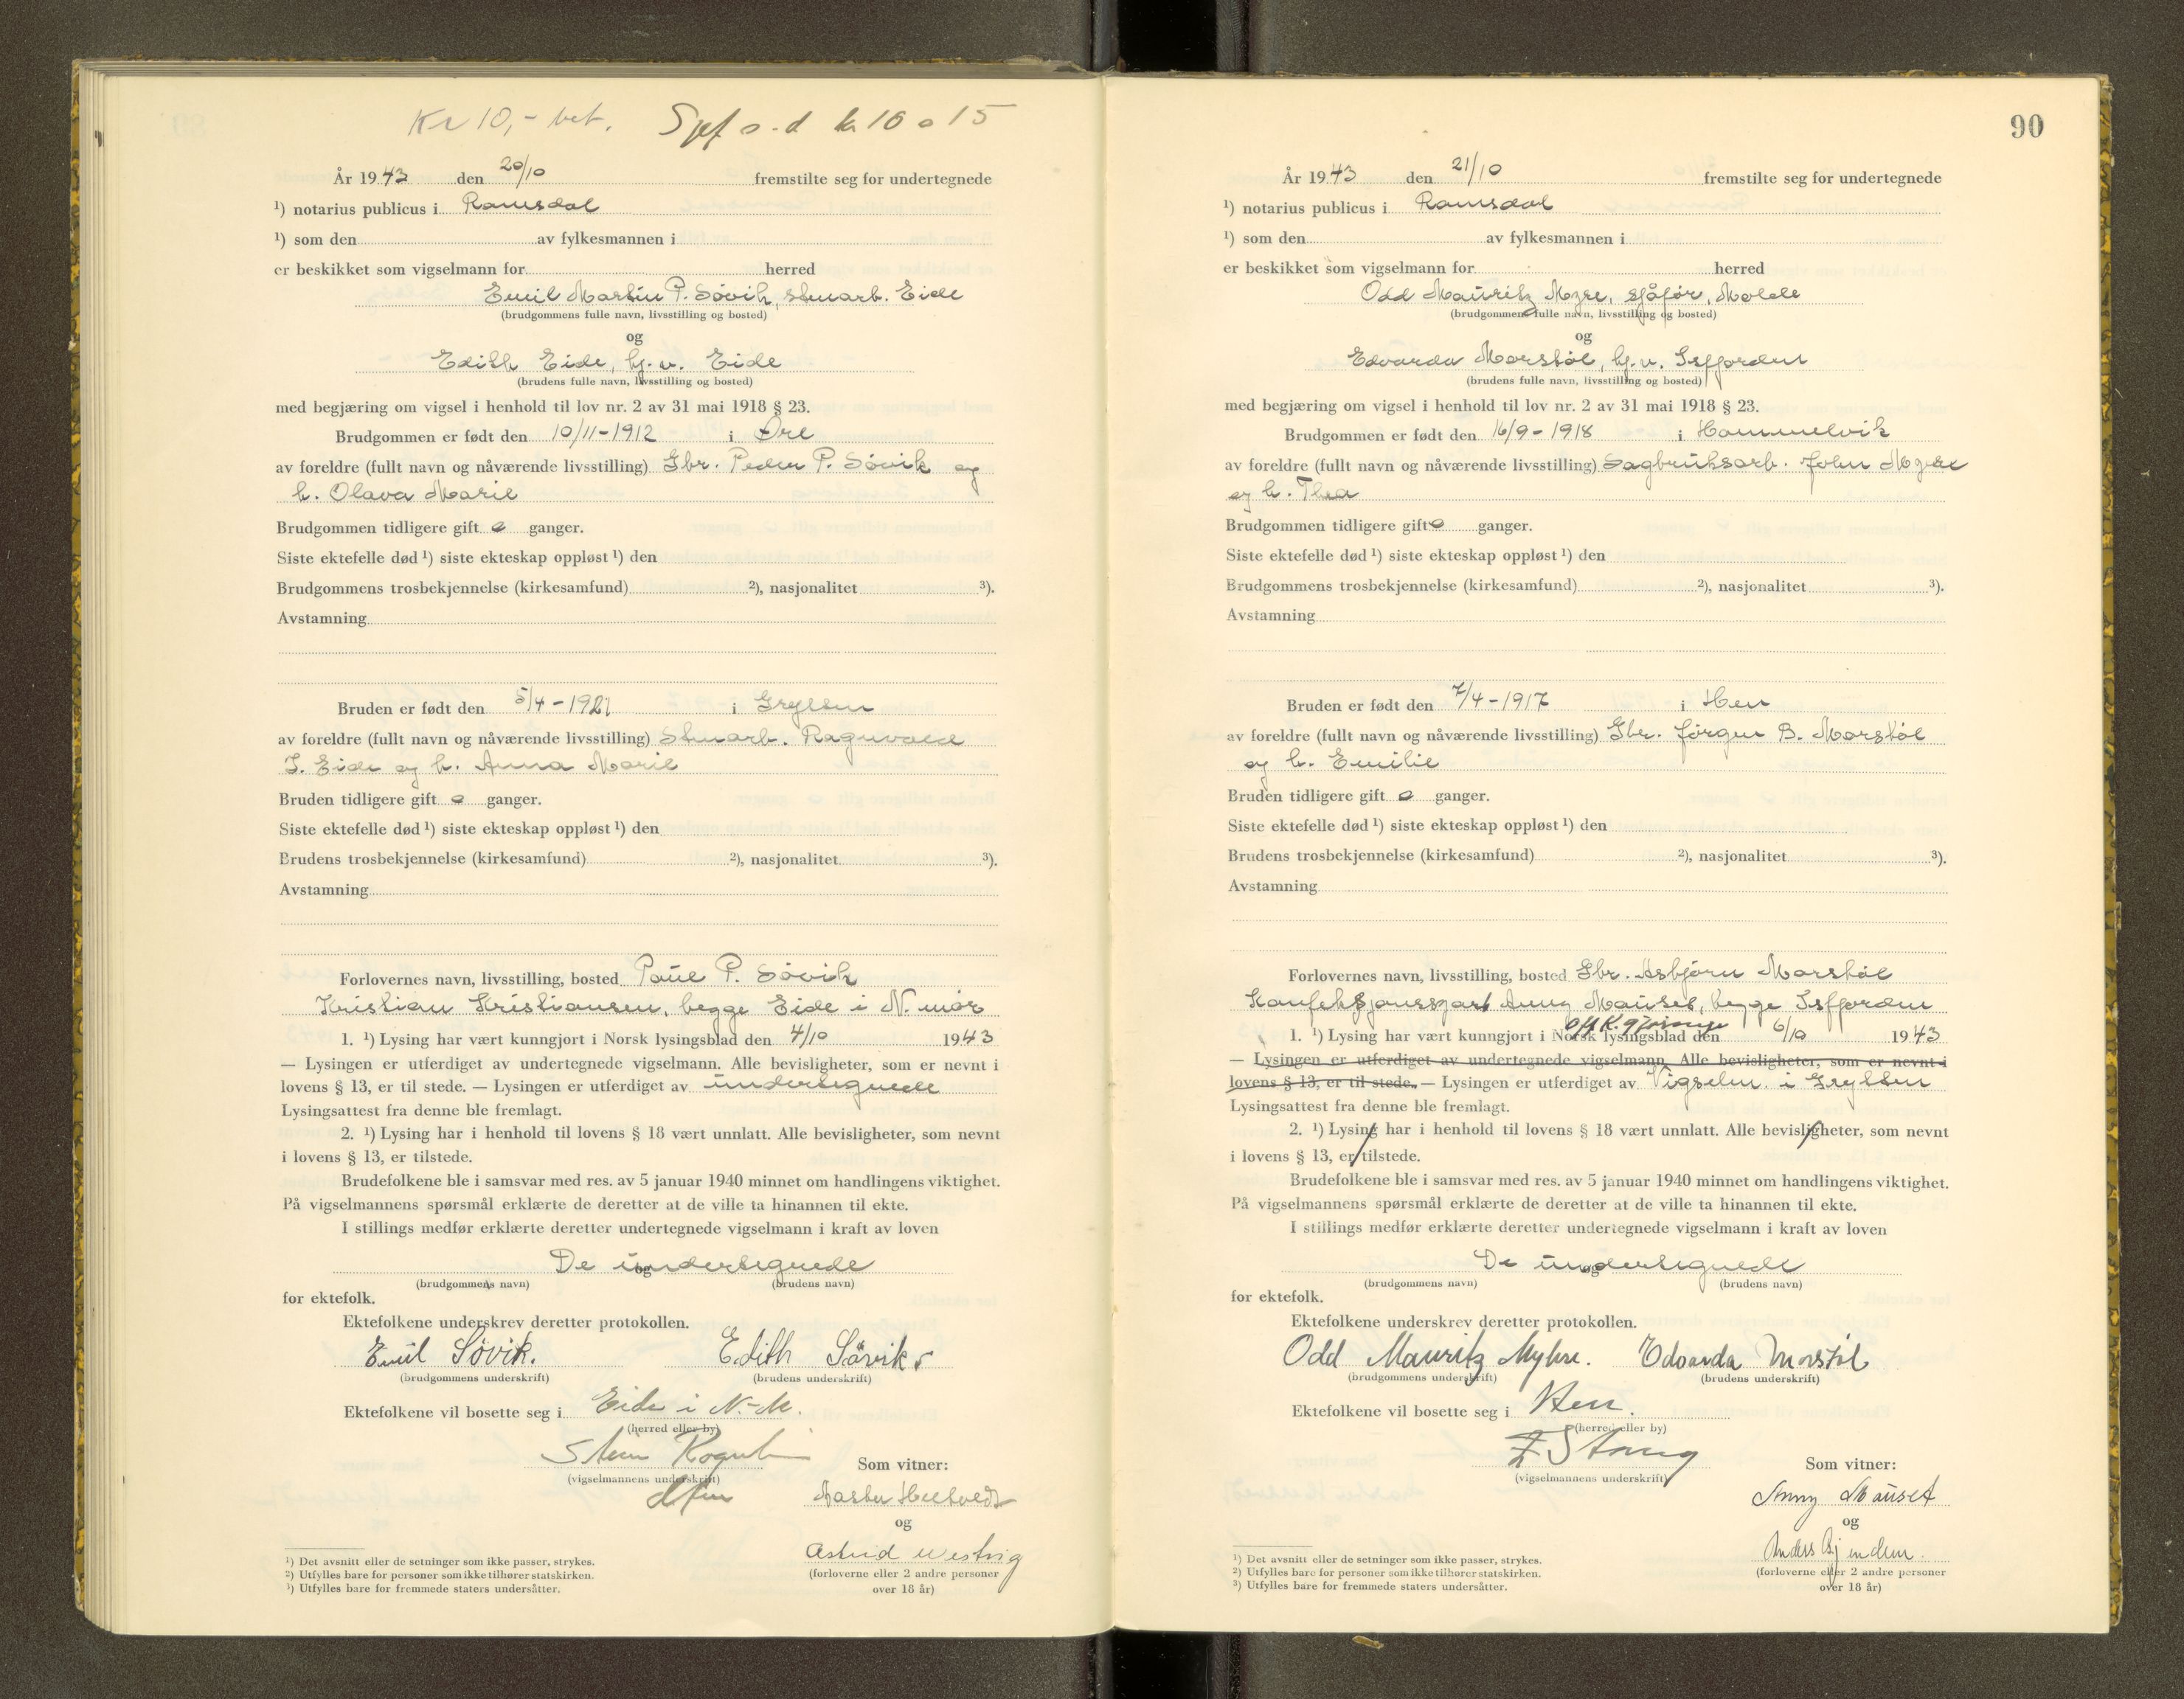 Kr 10,- bet.
År 1943 den 20/10 fremstilte seg for undertegnede
¹) notarius publicus i Romsdal
¹) som den av fylkesmannen i
er beskikket som vigselmann for herred
Emil Martin P. Søvik, stenarb. Eide
(brudgommens fulle navn, livsstilling og bosted)
og
Edith Eide, hj.v. Eide
(brudens fulle navn, livsstilling og bosted)
med begjæring om vigsel i henhold til lov nr. 2 av 31 mai 1918 § 23.
Brudgommen er født den 10/11-1912 i Øre
av foreldre (fullt navn og nåværende livsstilling) Gbr. Peder P. Søvik og
h. Olava Marie
Brudgommen tidligere gift o ganger.
Siste ektefelle død ¹) siste ekteskap oppløst ¹) den
Brudgommens trosbekjennelse (kirkesamfund) ²), nasjonalitet ³).
Avstamning
Bruden er født den 5/4-1921 i Gryllen
av foreldre (fullt navn og nåværende livsstilling) Stenarb. Ragnvald
I. Eide og h. Anna Marie
Bruden tidligere gift o ganger.
Siste ektefelle død ¹) siste ekteskap oppløst ¹) den
Brudens trosbekjennelse (kirkesamfund) ²), nasjonalitet ³).
Avstamning
Forlovernes navn, livsstilling, bosted Paul P. Søvik
Kristian Kristiansen, begge Eide i N. mør
1. ¹) Lysing har vært kunngjort i Norsk lysingsblad den 4/10 1943
— Lysingen er utferdiget av undertegnede vigselmann. Alle bevisligheter, som er nevnt i
lovens § 13, er til stede. — Lysingen er utferdiget av undertegnede
Lysingsattest fra denne ble fremlagt.
2. ¹) Lysing har i henhold til lovens § 18 vært unnlatt. Alle bevisligheter, som nevnt
i lovens § 13, er tilstede.
Brudefolkene ble i samsvar med res. av 5 januar 1940 minnet om handlingens viktighet.
På vigselmannens spørsmål erklærte de deretter at de ville ta hinannen til ekte.
I stillings medfør erklærte deretter undertegnede vigselmann i kraft av loven
De undertegnede
og
(brudgommens navn) (brudens navn)
for ektefolk.
Ektefolkene underskrev deretter protokollen.
Emil Søvik. Edith Søvik
(brudgommens underskrift) (brudens underskrift)
Ektefolkene vil bosette seg i Eide i N.-M.
(herred eller by)
Stein
(vigselmannens underskrift)
Som vitner:
og
Astrid
(forloverne eller 2 andre personer
over 18 år)
¹) Det avsnitt eller de setninger som ikke passer, strykes.
²) Utfylles bare for personer som ikke tilhører statskirken.
³) Utfylles bare for fremmede staters undersåtter.
90
År 1943 den 21/10 fremstilte seg for undertegnede
¹) notarius publicus i Romsdal
¹) som den av fylkesmannen i
er beskikket som vigselmann for herred
Odd Mauritz Myre, sjåfør, Molde
(brudgommens fulle navn, livsstilling og bosted)
og
Edvarda Morstøl, hj.v. Isfjorden
(brudens fulle navn, livsstilling og bosted)
med begjæring om vigsel i henhold til lov nr. 2 av 31 mai 1918 § 23.
Brudgommen er født den 16/9-1918 i Hommelvik
av foreldre (fullt navn og nåværende livsstilling) Sagbruksarb. John Myhre
og h. Thea
Brudgommen tidligere gift o ganger.
Siste ektefelle død ¹) siste ekteskap oppløst ¹) den
Brudgommens trosbekjennelse (kirkesamfund) ²), nasjonalitet ³).
Avstamning
Bruden er født den 7/4-1917 i Hen
av foreldre (fullt navn og nåværende livsstilling) Gbr. Jørgen B. Morstøl
og h. Emilie
Bruden tidligere gift o ganger.
Siste ektefelle død ¹) siste ekteskap oppløst ¹) den
Brudens trosbekjennelse (kirkesamfund) ²), nasjonalitet ³).
Avstamning
Forlovernes navn, livsstilling, bosted Gbr. Asbjørn Morstøl
Anny Mauset, begge Isfjorden
1. ¹) Lysing har vært kunngjort i Norsk lysingsblad den 6/10 1943
— Lysingen er utferdiget av undertegnede vigselmann. Alle bevisligheter, som er nevnt i
lovens § 13, er til stede. — Lysingen er utferdiget av Vigselm. i Grytten
Lysingsattest fra denne ble fremlagt.
2. ¹) Lysing har i henhold til lovens § 18 vært unnlatt. Alle bevisligheter, som nevnt
i lovens § 13, er tilstede.
Brudefolkene ble i samsvar med res. av 5 januar 1940 minnet om handlingens viktighet.
På vigselmannens spørsmål erklærte de deretter at de ville ta hinannen til ekte.
I stillings medfør erklærte deretter undertegnede vigselmann i kraft av loven
De undertegnede
og
(brudgommens navn) (brudens navn)
for ektefolk.
Ektefolkene underskrev deretter protokollen.
Odd Mauritz Myhre. Edvarda Morstøl
(brudgommens underskrift) (brudens underskrift)
Ektefolkene vil bosette seg i Hen.
(herred eller by)
(vigselmannens underskrift)
Som vitner:
Anny Mauset
og
Anders
(forloverne eller 2 andre personer
over 18 år)
¹) Det avsnitt eller de setninger som ikke passer, strykes.
²) Utfylles bare for personer som ikke tilhører statskirken.
³) Utfylles bare for fremmede staters undersåtter.